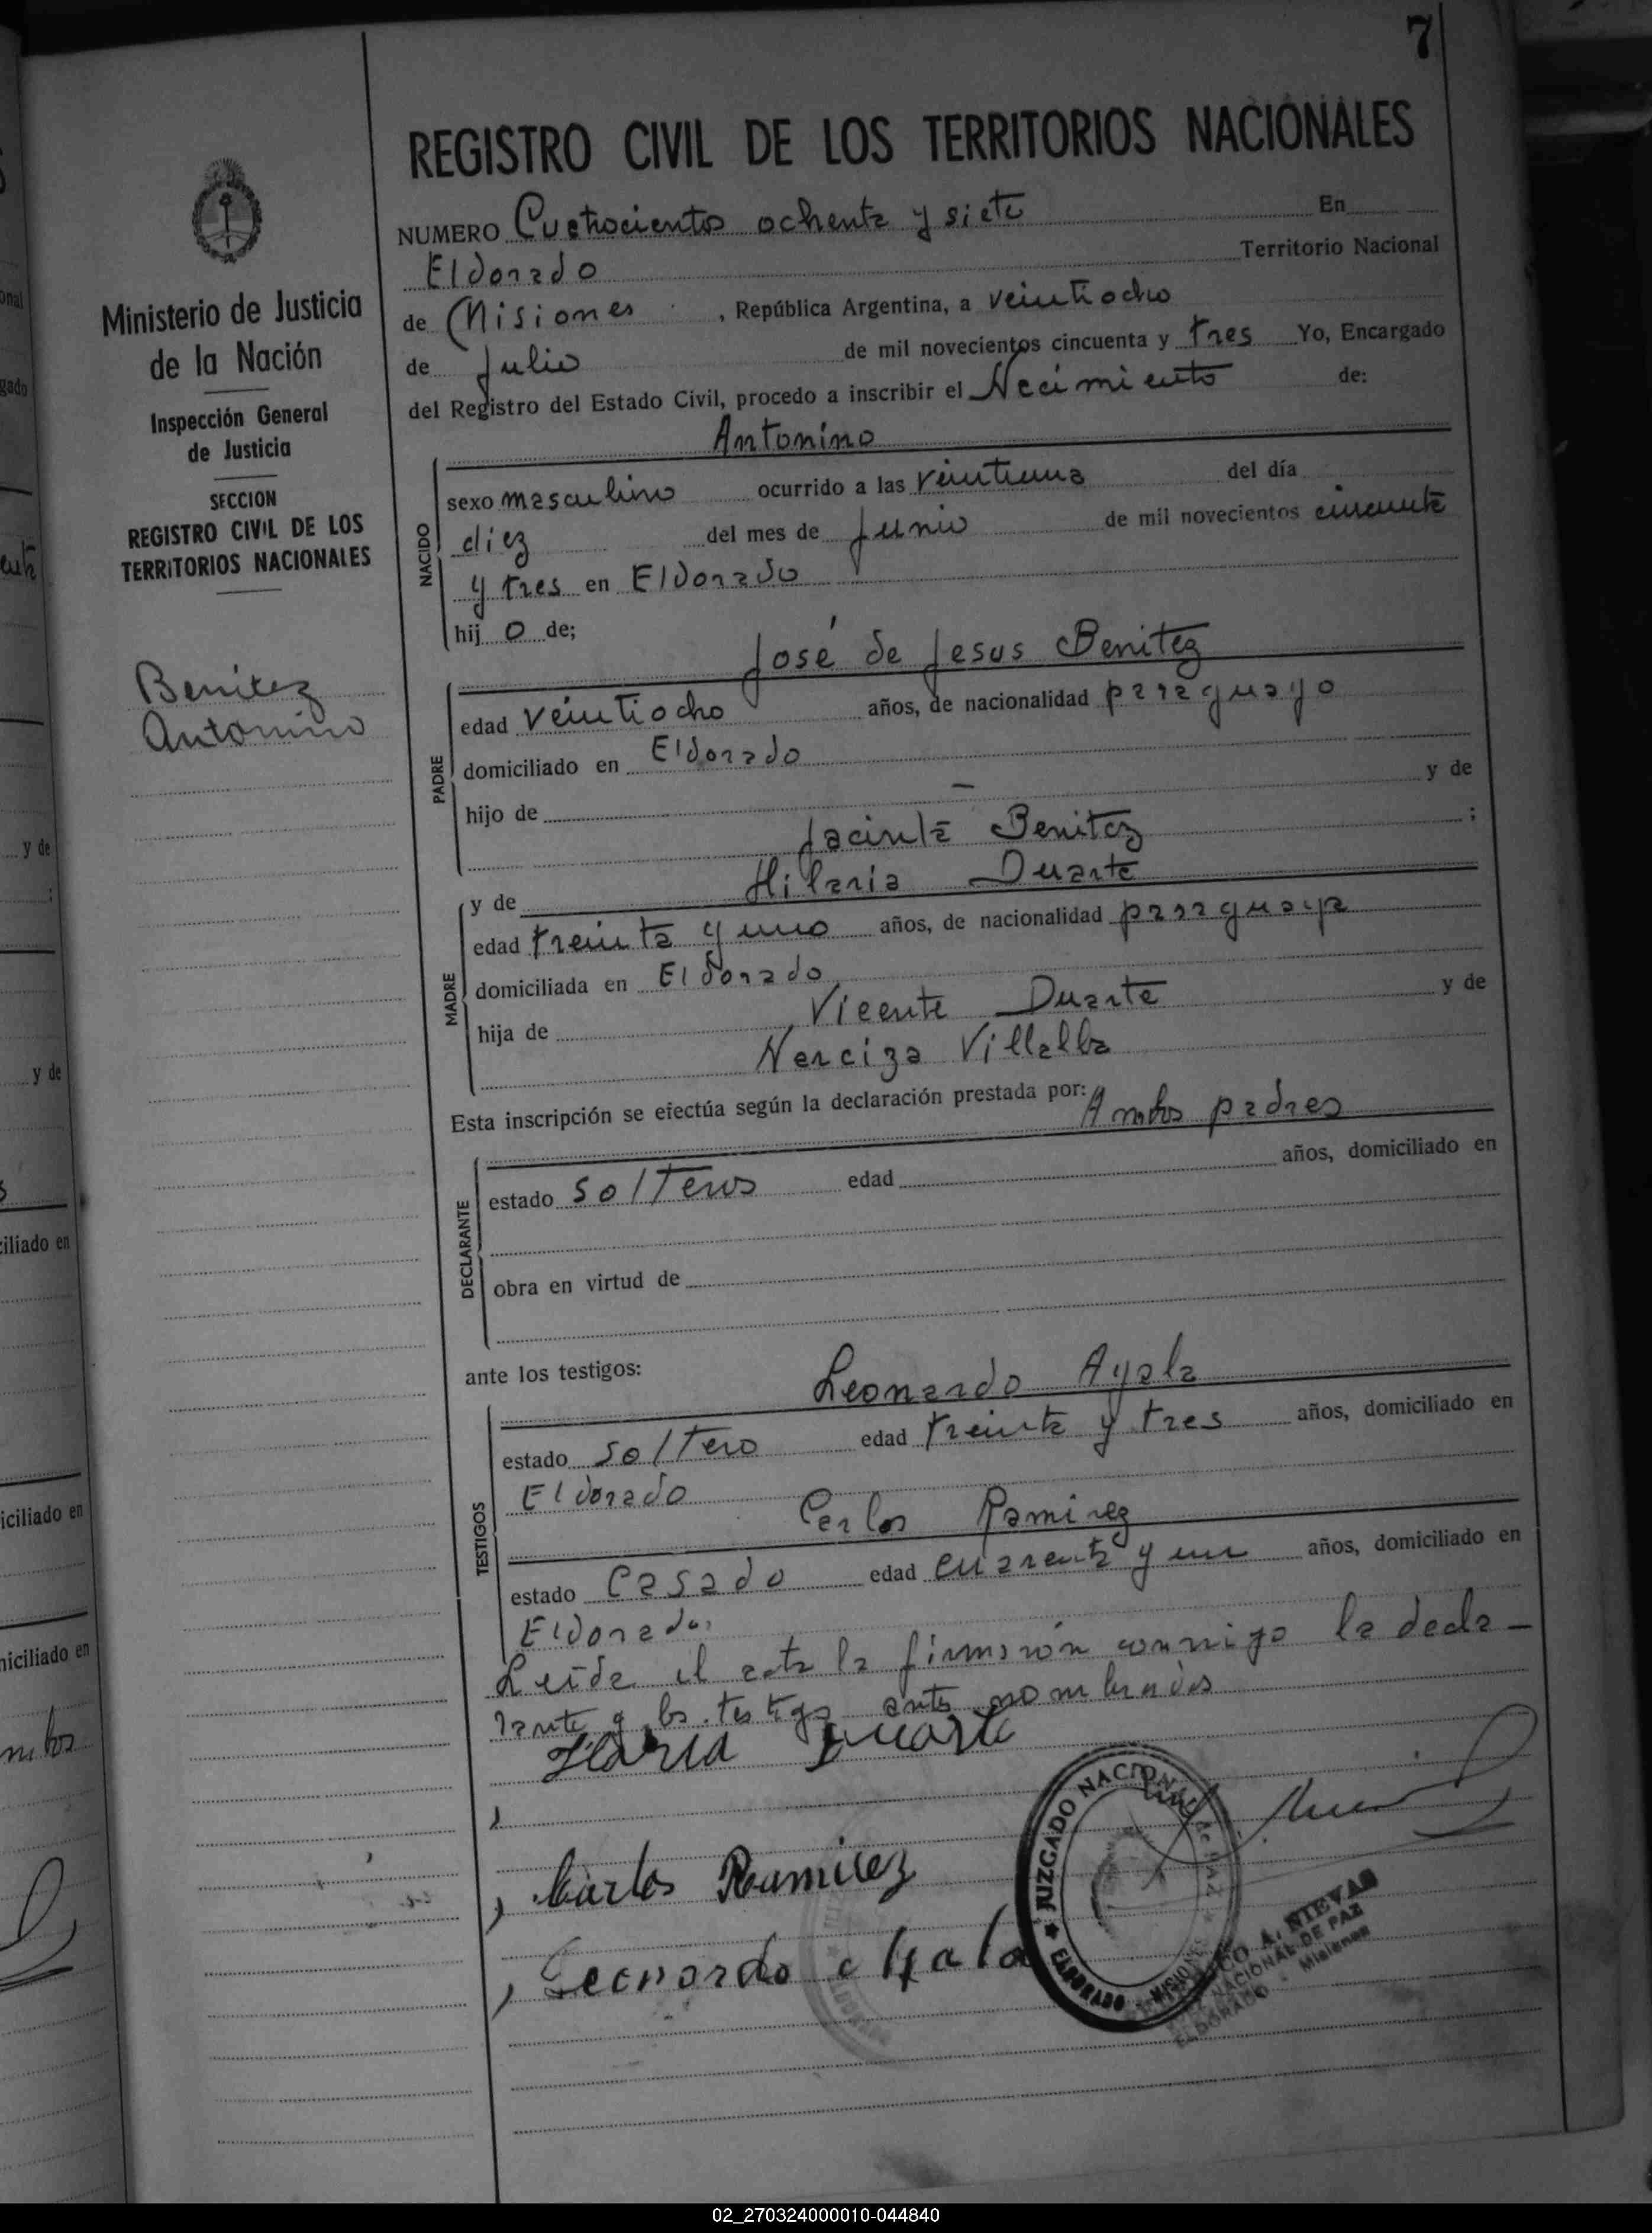 7
REGISTRO CIVIL DE LOS TERRITORIOS NACIONALES
NUMERO Cuatrocientos ochenta y siete En
Eldorado Territorio Nacional
de Misiones, República Argentina, a veintiocho
de Julio de mil novecientos cincuenta y tres Yo, Encargado
del Registro del Estado Civil, procedo a inscribir el Nacimiento de:
Antonino
NACIDO
sexo masculino ocurrido a las veintiuna del día
diez del mes de Junio de mil novecientos cincuenta
y tres en Eldorado
hij o de;
José de Jesus Benitez
PADRE
edad veintiocho años, de nacionalidad paraguayo
domiciliado en Eldorado
hijo de — y de
Jacinta Benitez ;
y de Hilaria Duarte
MADRE
edad treinta y uno años, de nacionalidad paraguaya
domiciliada en Eldorado
hija de Vicente Duarte y de
Narciza Villalba
Esta inscripción se efectúa según la declaración prestada por: Ambos padres
DECLARANTE
estado solteros edad años, domiciliado en
obra en virtud de
ante los testigos: Leonardo Ayala
TESTIGOS
estado soltero edad treinta y tres años, domiciliado en
Eldorado
Carlos Ramirez
estado Casado edad cuarenta y un años, domiciliado en
Eldorado.
Leída el acta la firmarón conmigo la decla-
rante y los testigos antes nombrados
Ilaria Duarte
Carlos Ramirez
Leonardo Ayala
JUZGADO NACIONAL de PAZ
ELDORADO - MISIONES
A. NIEVAS
NACIONAL DE PAZ
ELDORADO - Misiones
Ministerio de Justicia
de la Nación
Inspección General
de Justicia
SECCION
REGISTRO CIVIL DE LOS
TERRITORIOS NACIONALES
Benitez
Antonino
gado
y de
y de
ciliado en
iciliado en
niciliado en
02_270324000010-044840